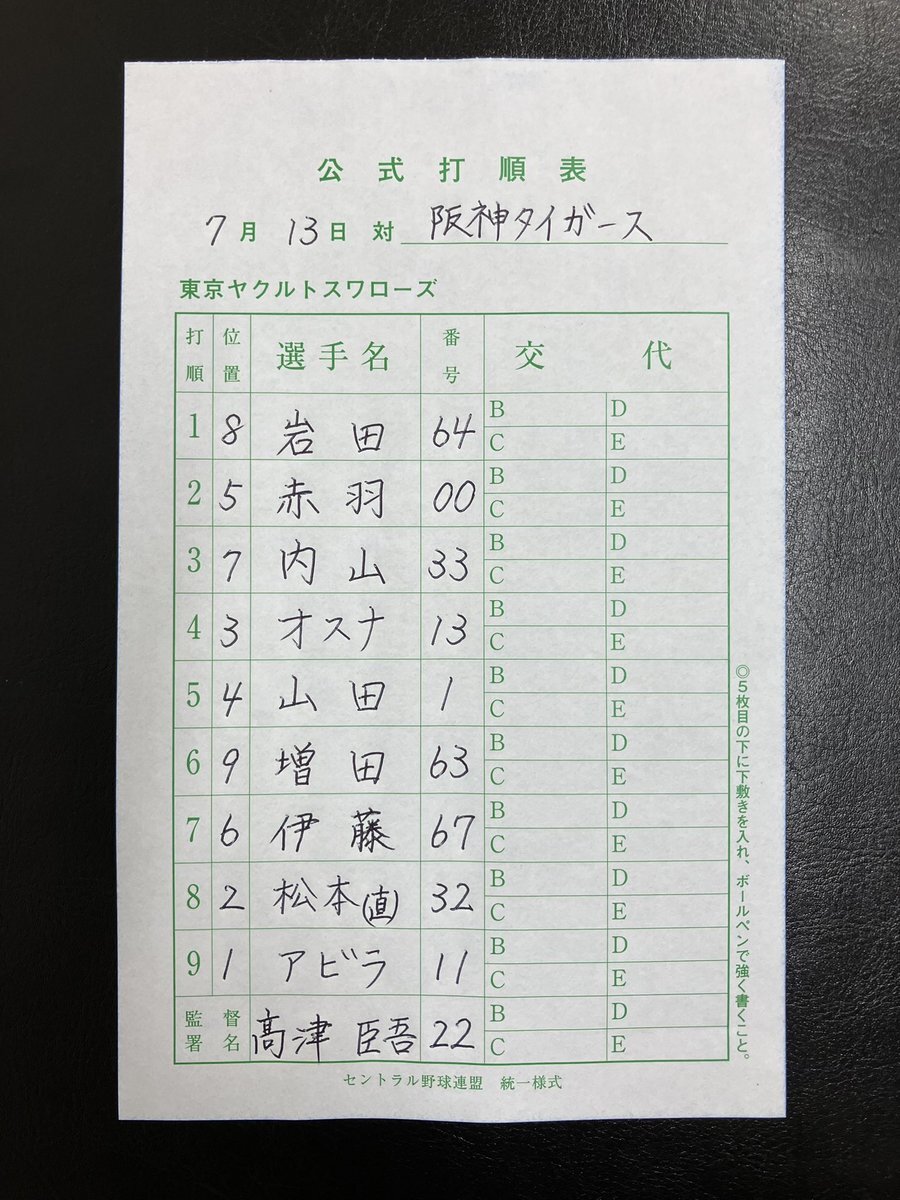 公式打順表
7月13日 対 阪神タイガース
東京ヤクルトスワローズ
打順 位置 選手名 番号 交代
1 8 岩田 64 B D C E
2 5 赤羽 00 B D C E
3 7 内山 33 B D C E
4 3 オスナ 13 B D C E
5 4 山田 1 B D C E
6 9 増田 63 B D C E
7 6 伊藤 67 B D C E
8 2 松本(直) 32 B D C E
9 1 アビラ 11 B D C E
監督署名 髙津 臣吾 22 B D C E
セントラル野球連盟 統一様式
◎5枚目の下に下敷きを入れ、ボールペンで強く書くこと。